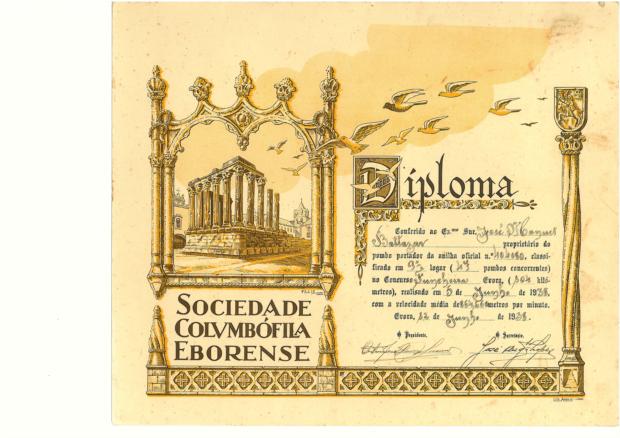 Diploma
Conferido ao Ex.mo Snr. José Manuel
Baltazar proprietário do
pombo portador da anilha oficial n.º 404080, classi-
ficado em 9º logar (47 pombos concorrentes)
no Concurso Funcheira Evora, (104 kiló-
metros), realisado em 5 de Junho de 1938
com a velocidade média de metros por minuto.
Evora, 12 de Junho de 1938.
O Presidente, O Secretario,
SOCIEDADE
COLVMBÓFILA
EBORENSE